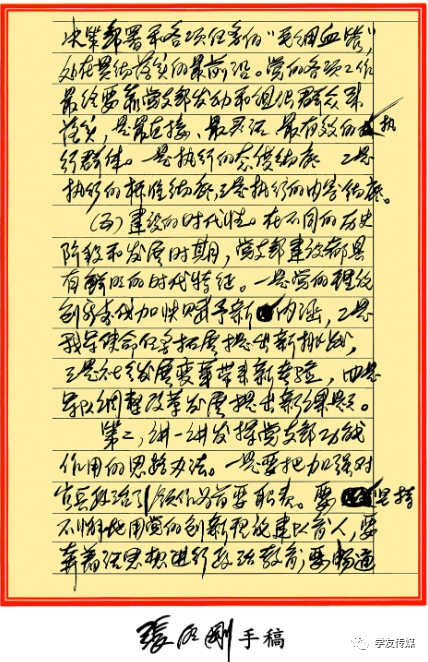 决策部署和各项任务的“毛细血管”,
处在贯彻落实的最前沿。党的各项工作
最终要靠党支部发动和组织群众来
落实,是最直接、最灵活、最有效的执
行群体。一是执行的 二是
执行的标准 三是执行的内容
(五)建设的时代性。在不同的历史
阶段和发展时期,党支部建设都具
有鲜明的时代特征。一是党的理论
创新 加快赋予新内涵,二是
我军使命任务拓展提出新挑战,
三是社会发展变革带来新考验,四是
军队调整改革发展提出新课题。
第二,进一步发挥党支部功能
作用的思路办法。一是要把加强对
官兵政治引领作为首要职责。要坚持
不懈地用党的创新理论建队育人,要
奔着活思想进行政治教育,要畅通
手稿
学友传媒